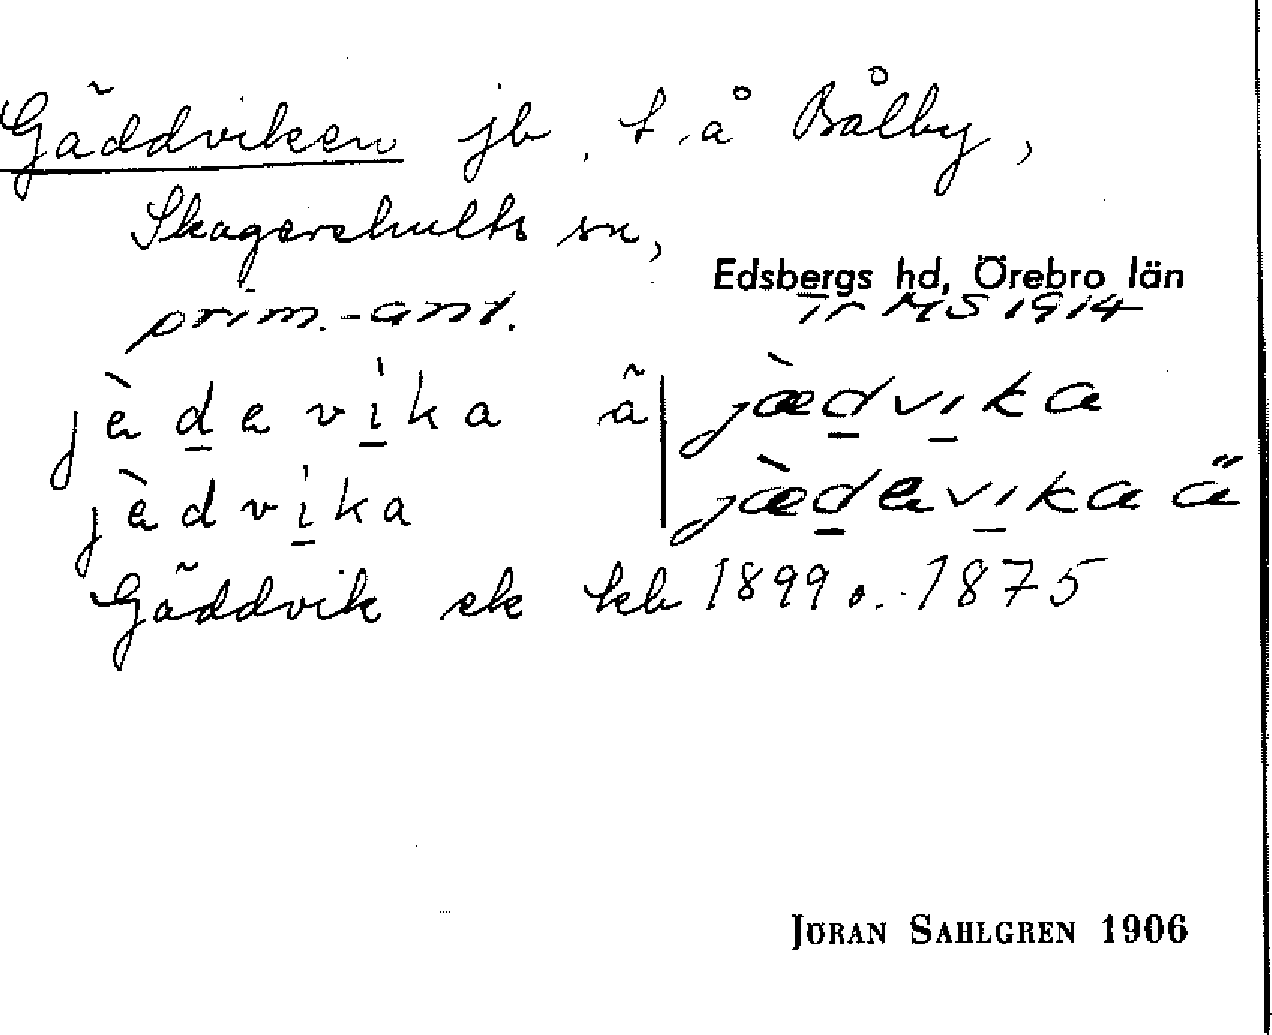 Gäddviken jb, t. å Bålby,
Skagershults sn,
Edsbergs hd, Örebro län
prim.-ant.
Tr MS 1914
jèdevika ä
jædvika
jèdvika
jædevika ä
Gäddvik ek kb 1899 o. 1875
JÖRAN SAHLGREN 1906